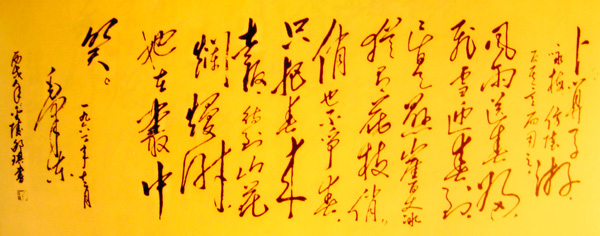 卜算子
咏梅 读陆游
反其意而用之
风雨送春归
飞雪迎春到
已是悬崖百丈冰
犹有花枝俏
俏也不争春
只把春来
报 待到山花
烂熳时
她在丛中
笑。
一九六一年十二月
毛泽东